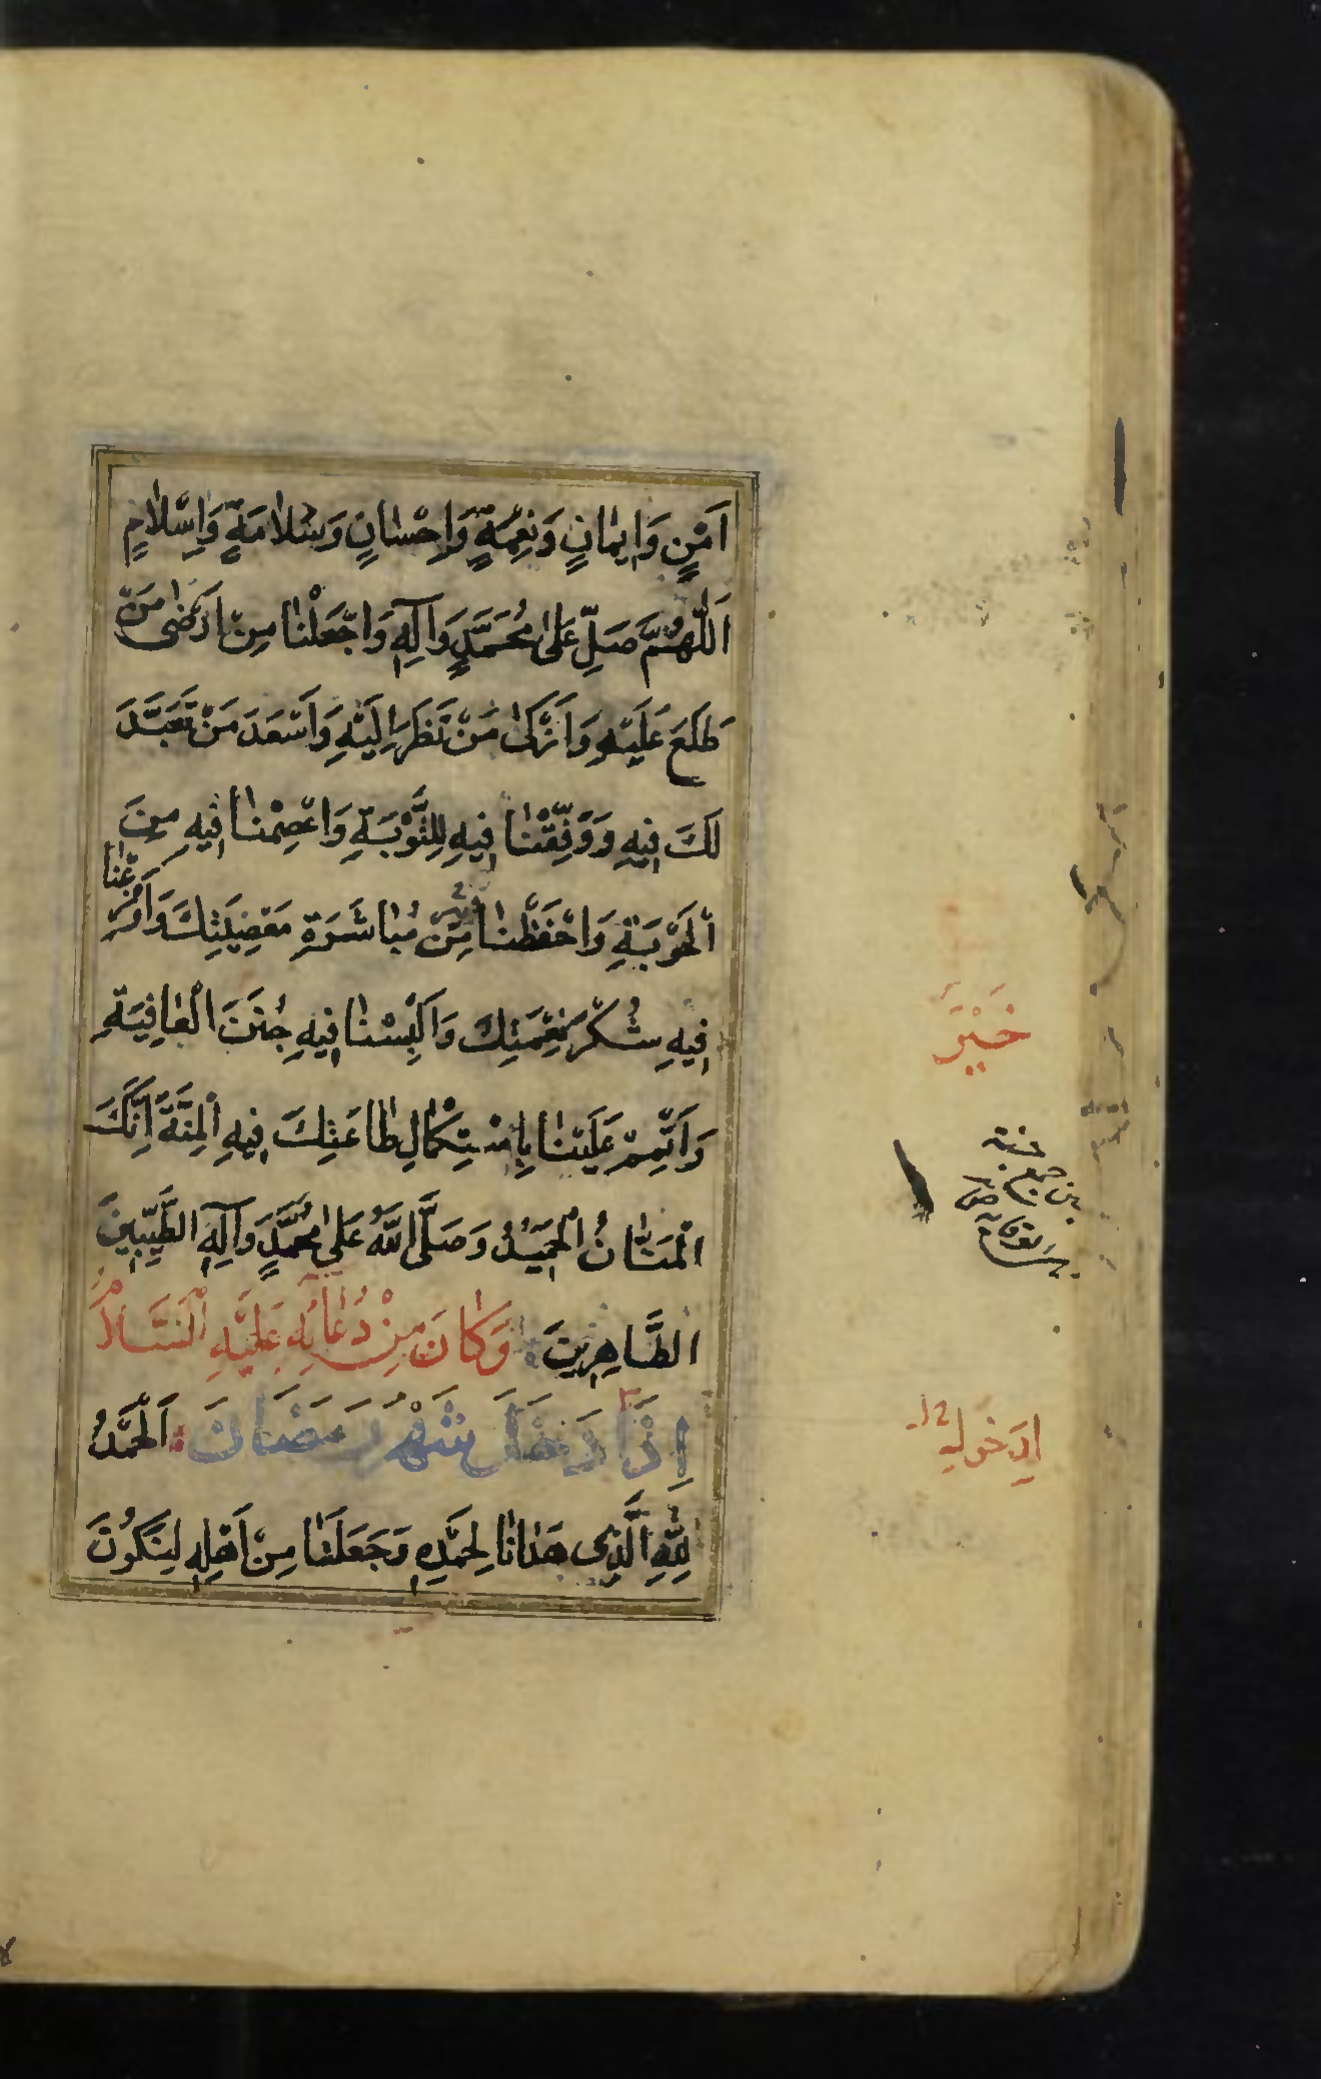 اَمْنٍ وَاِیمٰانٍ وَنِعْمَةٍ وَاِحْسٰانٍ وَسَلاٰمَةٍ وَاِسْلاٰمٍ
اَللّٰهُمَّ صَلِّ عَلٰی مُحَمَّدٍ وَاٰلِهِ وَاجْعَلْنٰا مِنْ اَرْضٰی مَنْ
طَلَعَ عَلَیْهِ وَاَزْکٰی مَنْ نَظَرَ اِلَیْهِ وَاَسْعَدَ مَنْ تَعَبَّدَ
لَكَ فِیهِ وَوَفِّقْنٰا فِیهِ لِلتَّوْبَةِ وَاعْصِمْنٰا فِیهِ مِنَ
الْحَوْبَةِ وَاحْفَظْنٰا فِیهِ مِنْ مُبٰاشَرَةِ مَعْصِیَتِكَ وَاَوْزِعْنٰا
فِیهِ شُکْرَ نِعْمَتِكَ وَاَلْبِسْنٰا فِیهِ جُنَنَ الْعٰافِیَةِ
وَاَتْمِمْ عَلَیْنٰا بِاسْتِکْمٰالِ طٰاعَتِكَ فِیهِ الْمِنَّةَ اِنَّكَ
الْمَنّٰانُ الْحَمِیدُ وَصَلَّی اللّٰهُ عَلٰی مُحَمَّدٍ وَاٰلِهِ الطَّیِّبِینَ
الطَّاهِرِینَ وَکٰانَ مِنْ دُعٰائِهِ عَلَیْهِ السَّلاٰمُ
اِذٰا دَخَلَ شَهْرُ رَمَضَانَ اَلْحَمْدُ
لِلّٰهِ الَّذِی هَدٰانٰا لِحَمْدِهِ وَجَعَلَنٰا مِنْ اَهْلِهِ لِنَکُونَ
خَیْرَ
لِدَخُولِ